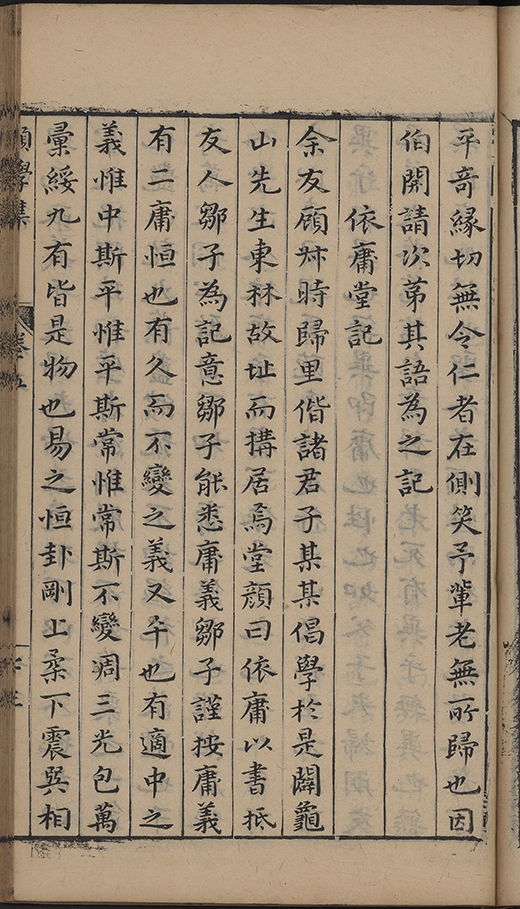 平奇緣切無令仁者在側笑予輩老無所歸也因
伯開請次第其語為之記
依庸堂記
余友顧叔時歸里偕諸君子某某倡學於是闢龜
山先生東林故址而搆居焉堂顏曰依庸以書抵
友人鄒子為記意鄒子能悉庸義鄒子謹按庸義
有二庸恒也有久而不變之義又平也有適中之
義惟中斯平惟平斯常惟常斯不變凋三光包萬
彙綏九有皆是物也易之恒卦剛上柔下震巽相
學集 卷五